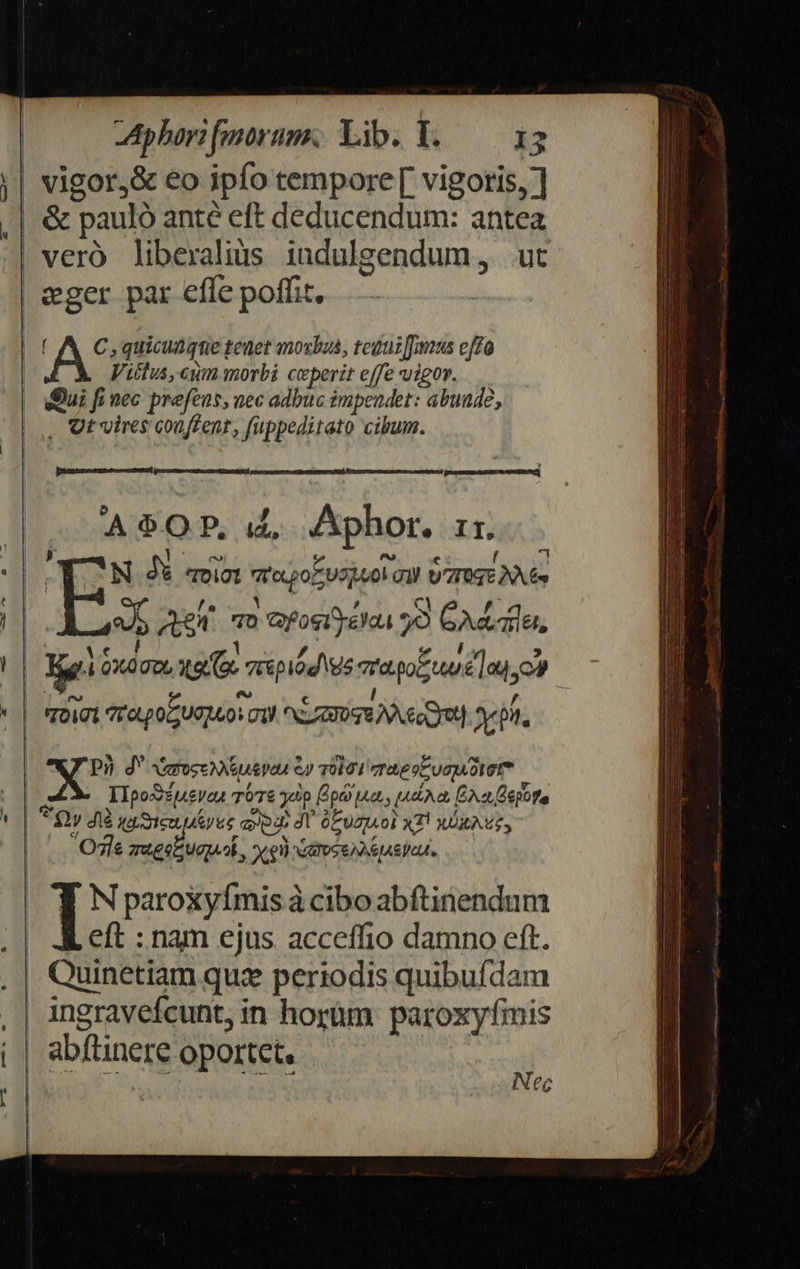 Aphoriſmorum. Lib. I. 13
vigor, & eo ipſo tempore [ vigoris, ]
& paulò antè eſt deducendum: antea
verò liberaliùs indulgendum, ut
æger par eſſe poſſit.
AC, quicunque tenet morbus, tenuiſſimus eſto
Victus, cùm morbi cœperit eſſe vigor.
Qui ſi nec præſens, nec adhuc impendet: abundè,
Ut vires conſtent, ſuppeditato cibum.
ἈΦΟΡ. ιά. Aphor. 11.
ἘΝ δὲ τοῖσι παροξυσμοῖσιν ὑποςέλλεσ
χρή· τὸ προςιθέναι γὸ βλάπτει,
Καὶ ὁκόσοι κατὰ περιόδες παροξυύεται, ἐν
τοῖσι παροξυσμοῖσιν ὑποςέλλεσθαι χρή.
Χρὴ δ' ὑποςελλέμεναι ἐν τοῖσι παροξυσμότετ
Προθέμεναι τότε γὰρ βρώματα, μάλα βλαβερότε
Ὧν δὲ καθιςαμένες δ' ὀξυσμοὶ κύκλες,
Ὅτε παροξυσμοὶ, χρὴ ὑποςελλέμεναι.
IN paroxyſmis à cibo abſtinendum
eſt : nam ejus acceſſio damno eſt.
Quinetiam quæ periodis quibuſdam
ingraveſcunt, in horùm paroxyſmis
abſtinere oportet.
Nec